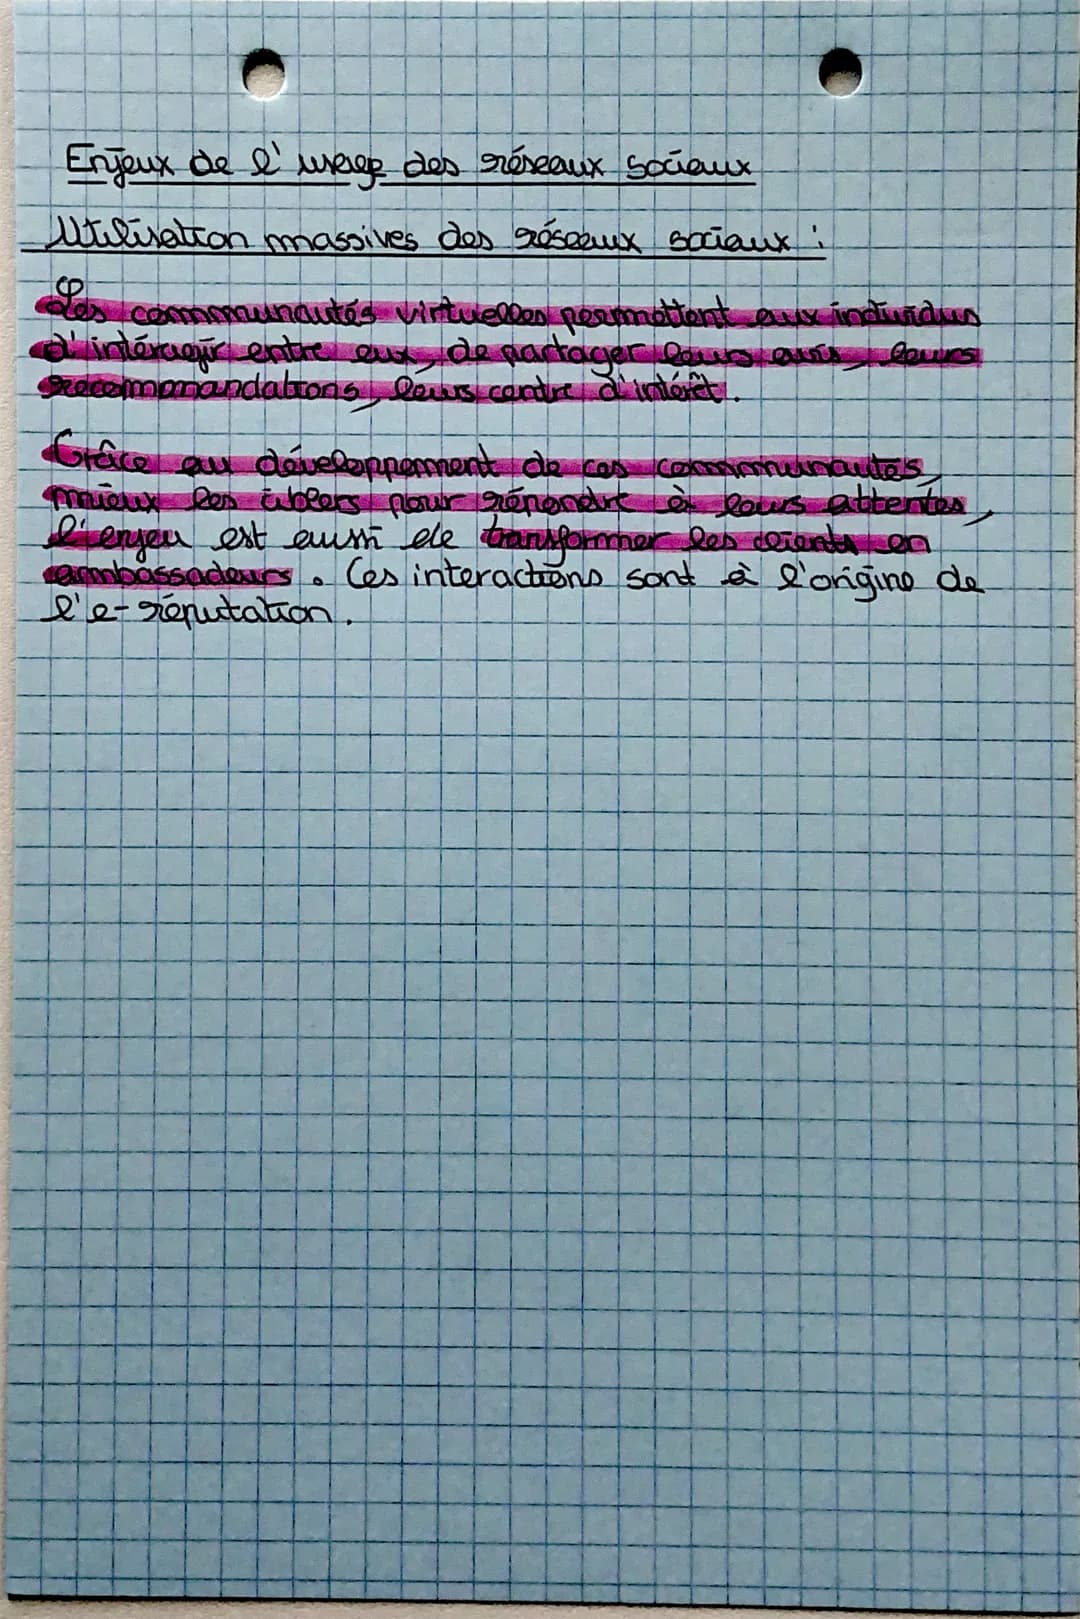 Enjeux de l'usage des réseaux sociaux
Utilisation massives des réseaux sociaux :
Les communautés virtuelles permettent aux individus
d'intéragir entre eux, de partager leurs avis, leurs
recommandations, leurs centre d'intérêt.
Grâce au développement de ces communautés,
mieux les cibler pour répondre à leurs attentes,
l'enjeu est aussi de transformer les clients en
ambassadeurs. Ces interactions sont à l'origine de
l'e-réputation.